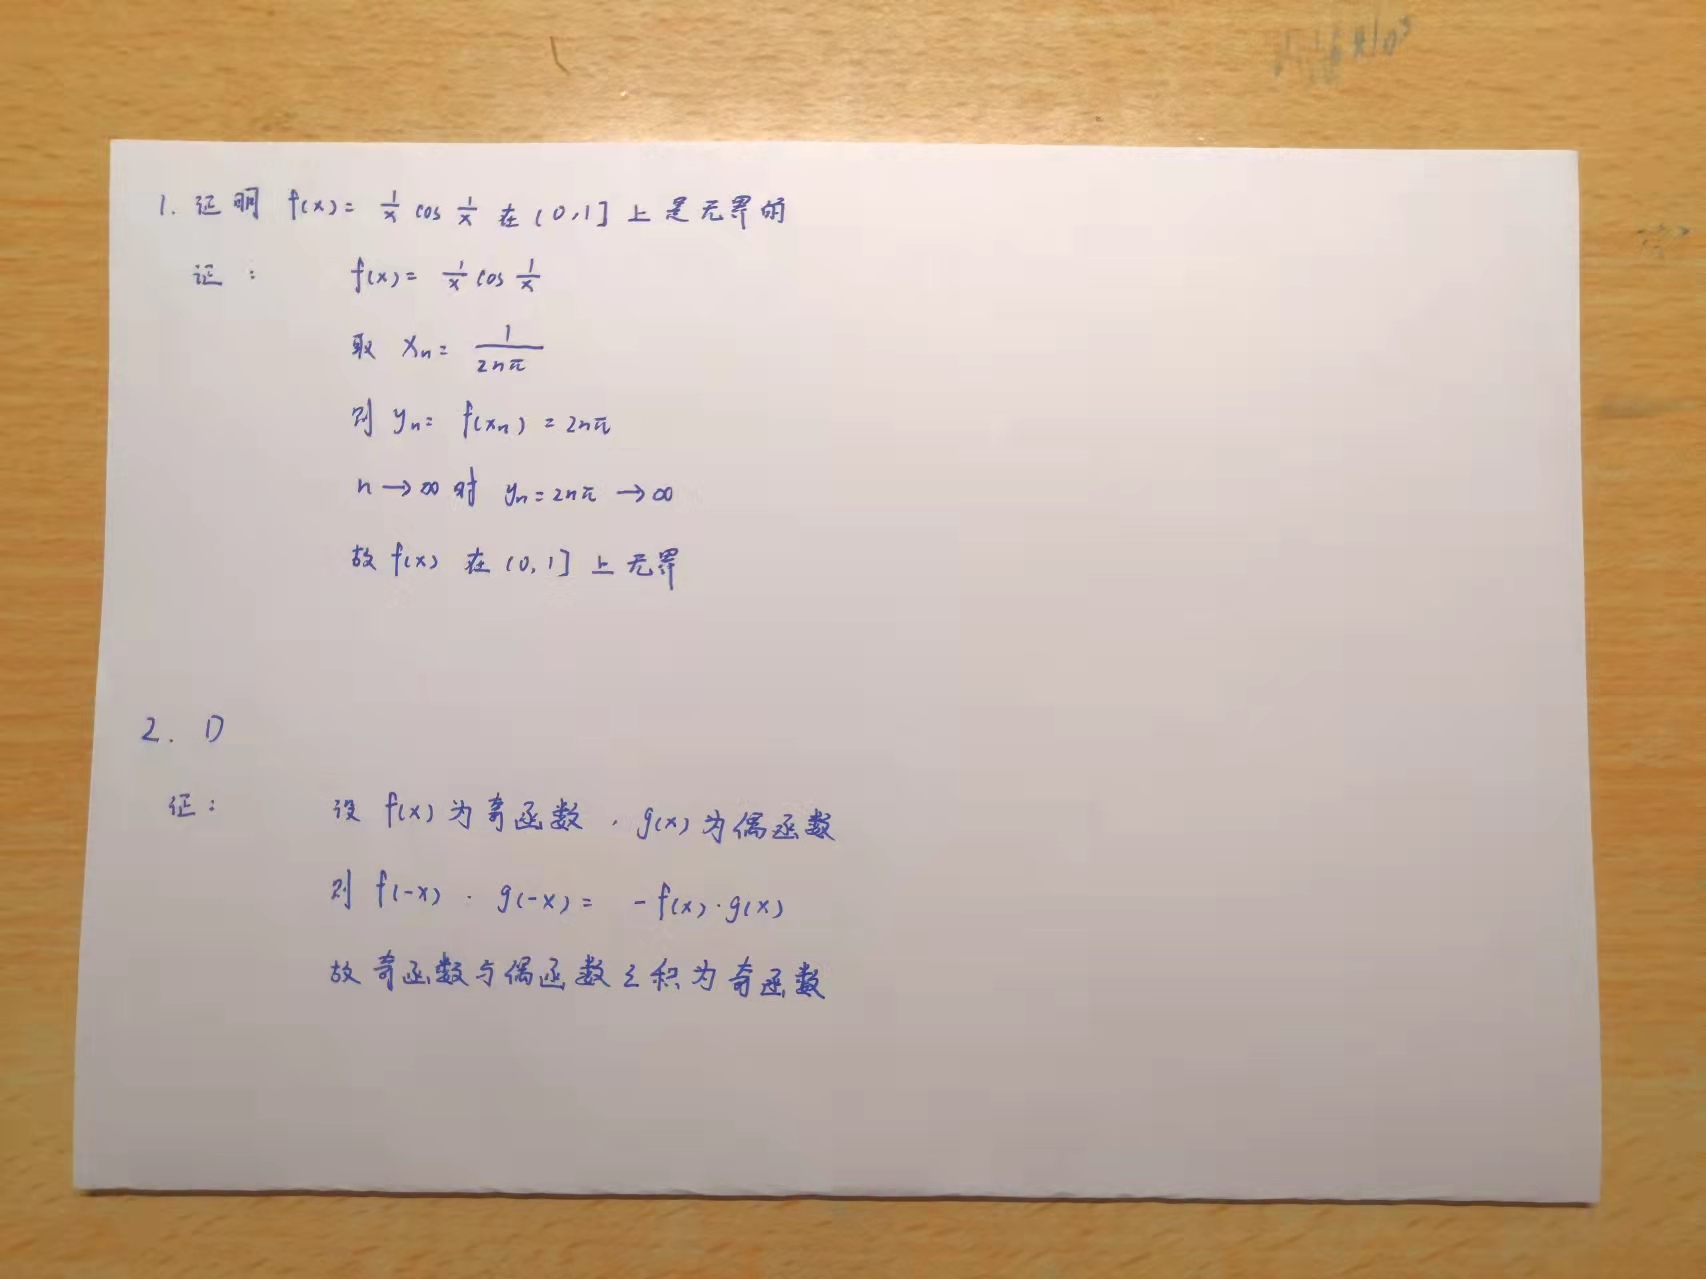 1. 证明 f(x)= 1/x cos 1/x 在 (0,1] 上是无界的
证: f(x)= 1/x cos 1/x
取 Xn= 1/2nπ
则 yn= f(xn) = 2nπ
n→∞ 时 yn=2nπ →∞
故 f(x) 在 (0,1] 上无界
2. D
证: 设 f(x) 为奇函数, g(x) 为偶函数
则 f(-x) · g(-x) = -f(x)·g(x)
故 奇函数与偶函数之积为奇函数